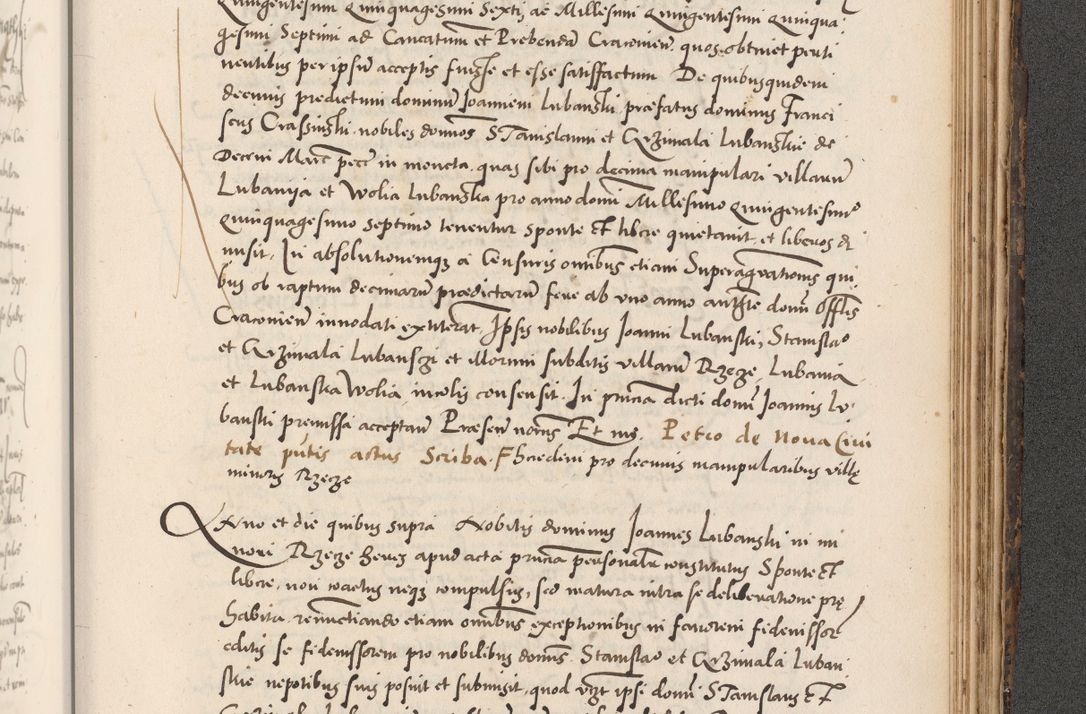 Quingentesimi Quinquagesimi Sexti ac Millesimi Quingentesimi Quinqua
gesimi Septimi ad Canicatum et Prebendã Cracovien̄. quos obtinet perti
nentibus per ipsũ acceptis fuisse et esse satisffactum De quibusquidem
decimis predictum dominũ Joannem Lubansky præfatus dominus Franci
scus Crassinski nobiles domos Stanislaum et Grzimala Lubanskie de
Decem Marc̄ pec̄ in moneta, quas sibi pro decima manipulari villarũ
Lubanija et Wolia Lubanska pro anno domi Millesimo Quingentesimo
Quinquagesimo Septimo tenentur sponte Et libere quietavit et liberos di
misit. In absolutionemqz a Censuris omĩbus etiam Superagravationis qui
bus ob raptum decimarũ prædictarũ fere ab uno anno auth̄te domĩ Offĩlis
Cracovien̄ innodati extiterat. Ipsis nobilibus Joanni Lubanski, Stanislao
et Grzimala Lubanski et illorum subditis villarũ Rzeze, Lubania
et Lubanska Wolia incolis consensit. In pñcia dicti domĩ Joannis Lu
banski premissa acceptan̄ Præsen̄ nobis Et me Petro de Nova Civi
tate pñtis actus Scriba. F hæredem pro decimis manipularibus villę
minoris Rzeze
Anno et die quibus supra Nobilis dominus Joannes Lubanski in mi
nori Rzeze heres apud acta pñcia personalr̃ constitutus Sponte Et
libere, non coactus neqz compulsus, sed matura intra se deliberatione prę
habita renunctiando etiam omĩbus exceptionibus in favorem fideiussor
editis se fideiussorem pro nobilibus domis Stanislao et Grzimala Luban
skie nepotibus suis posuit et submisit, quod vz̃t ipsi domĩ Stanislaus Et